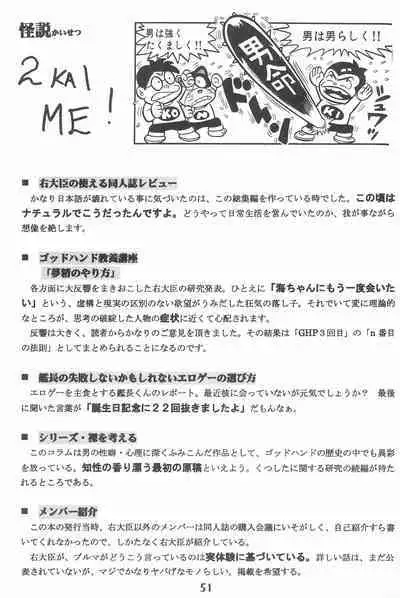 怪説かいせつ
2KAI
ME!
男は強く
たくましく!!
男は男らしく!!
男命
ドん!
ジュワッ
■ 右大臣の使える同人誌レビュー
かなり日本語が壊れている事に気づいたのは、この総集編を作っている時でした。この頃は
ナチュラルでこうだったんですよ。どうやって日常生活を営んでいたのか、我が事ながら
想像を絶します。
■ ゴッドハンド教養講座
「夢精のやり方」
各方面に大反響をまきおこした右大臣の研究発表。ひとえに「海ちゃんにもう一度会いた
い」という、虚構と現実の区別のない欲望がうみだした狂気の落し子。それでいて変に理論的
なところが、思考の破綻した人物の症状に近くて心配されます。
反響は大きく、読者からかなりのご意見を頂きました。その結果は「GHP3回目」の「n番目
の法則」としてまとめられることになるのです。
■ 艦長の失敗しないかもしれないエロゲーの選び方
エロゲーを主食とする艦長くんのレポート。最近彼に会っていないが元気でしょうか? 最後
に聞いた言葉が「誕生日記念に22回抜きましたよ」だもんなぁ。
■ シリーズ・裸を考える
このコラムは男の性癖・心理に深くふみこんだ作品として、ゴッドハンドの歴史の中でも異彩
を放っている。知性の香り漂う最初の原稿といえよう。くつしたに関する研究の続編が待た
れるところである。
■ メンバー紹介
この本の発行当時、右大臣以外のメンバーは同人誌の購入会議にいそがしく、自己紹介すら書
いてくれなかったので、しかたなく右大臣が紹介している。
右大臣が、ブルマがどうこう言っているのは実体験に基づいている。詳しい話は、まだ公
表されていないが、マジでかなりヤバげなモノらしい。掲載を希望する。
51